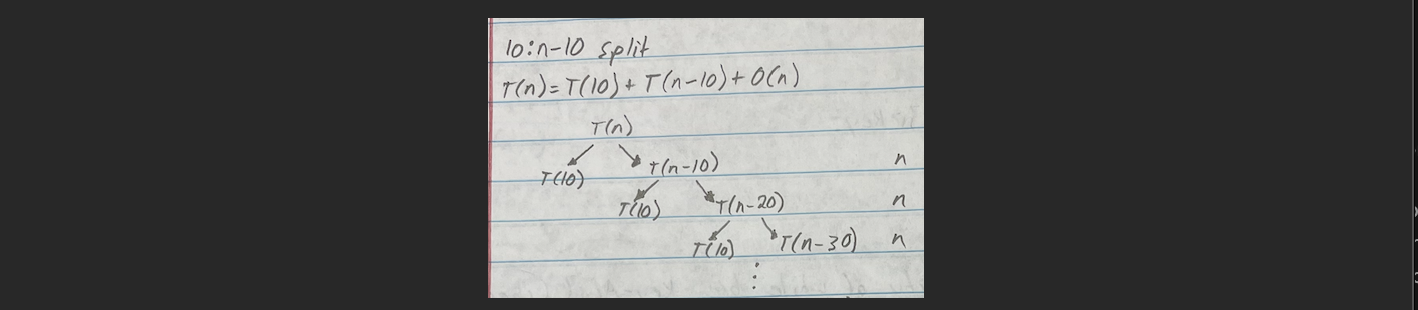 10:n-10 split
T(n)=T(10)+T(n-10)+O(n)
T(n)
T(10) T(n-10) n
T(10) T(n-20) n
T(10) T(n-30) n
⋮